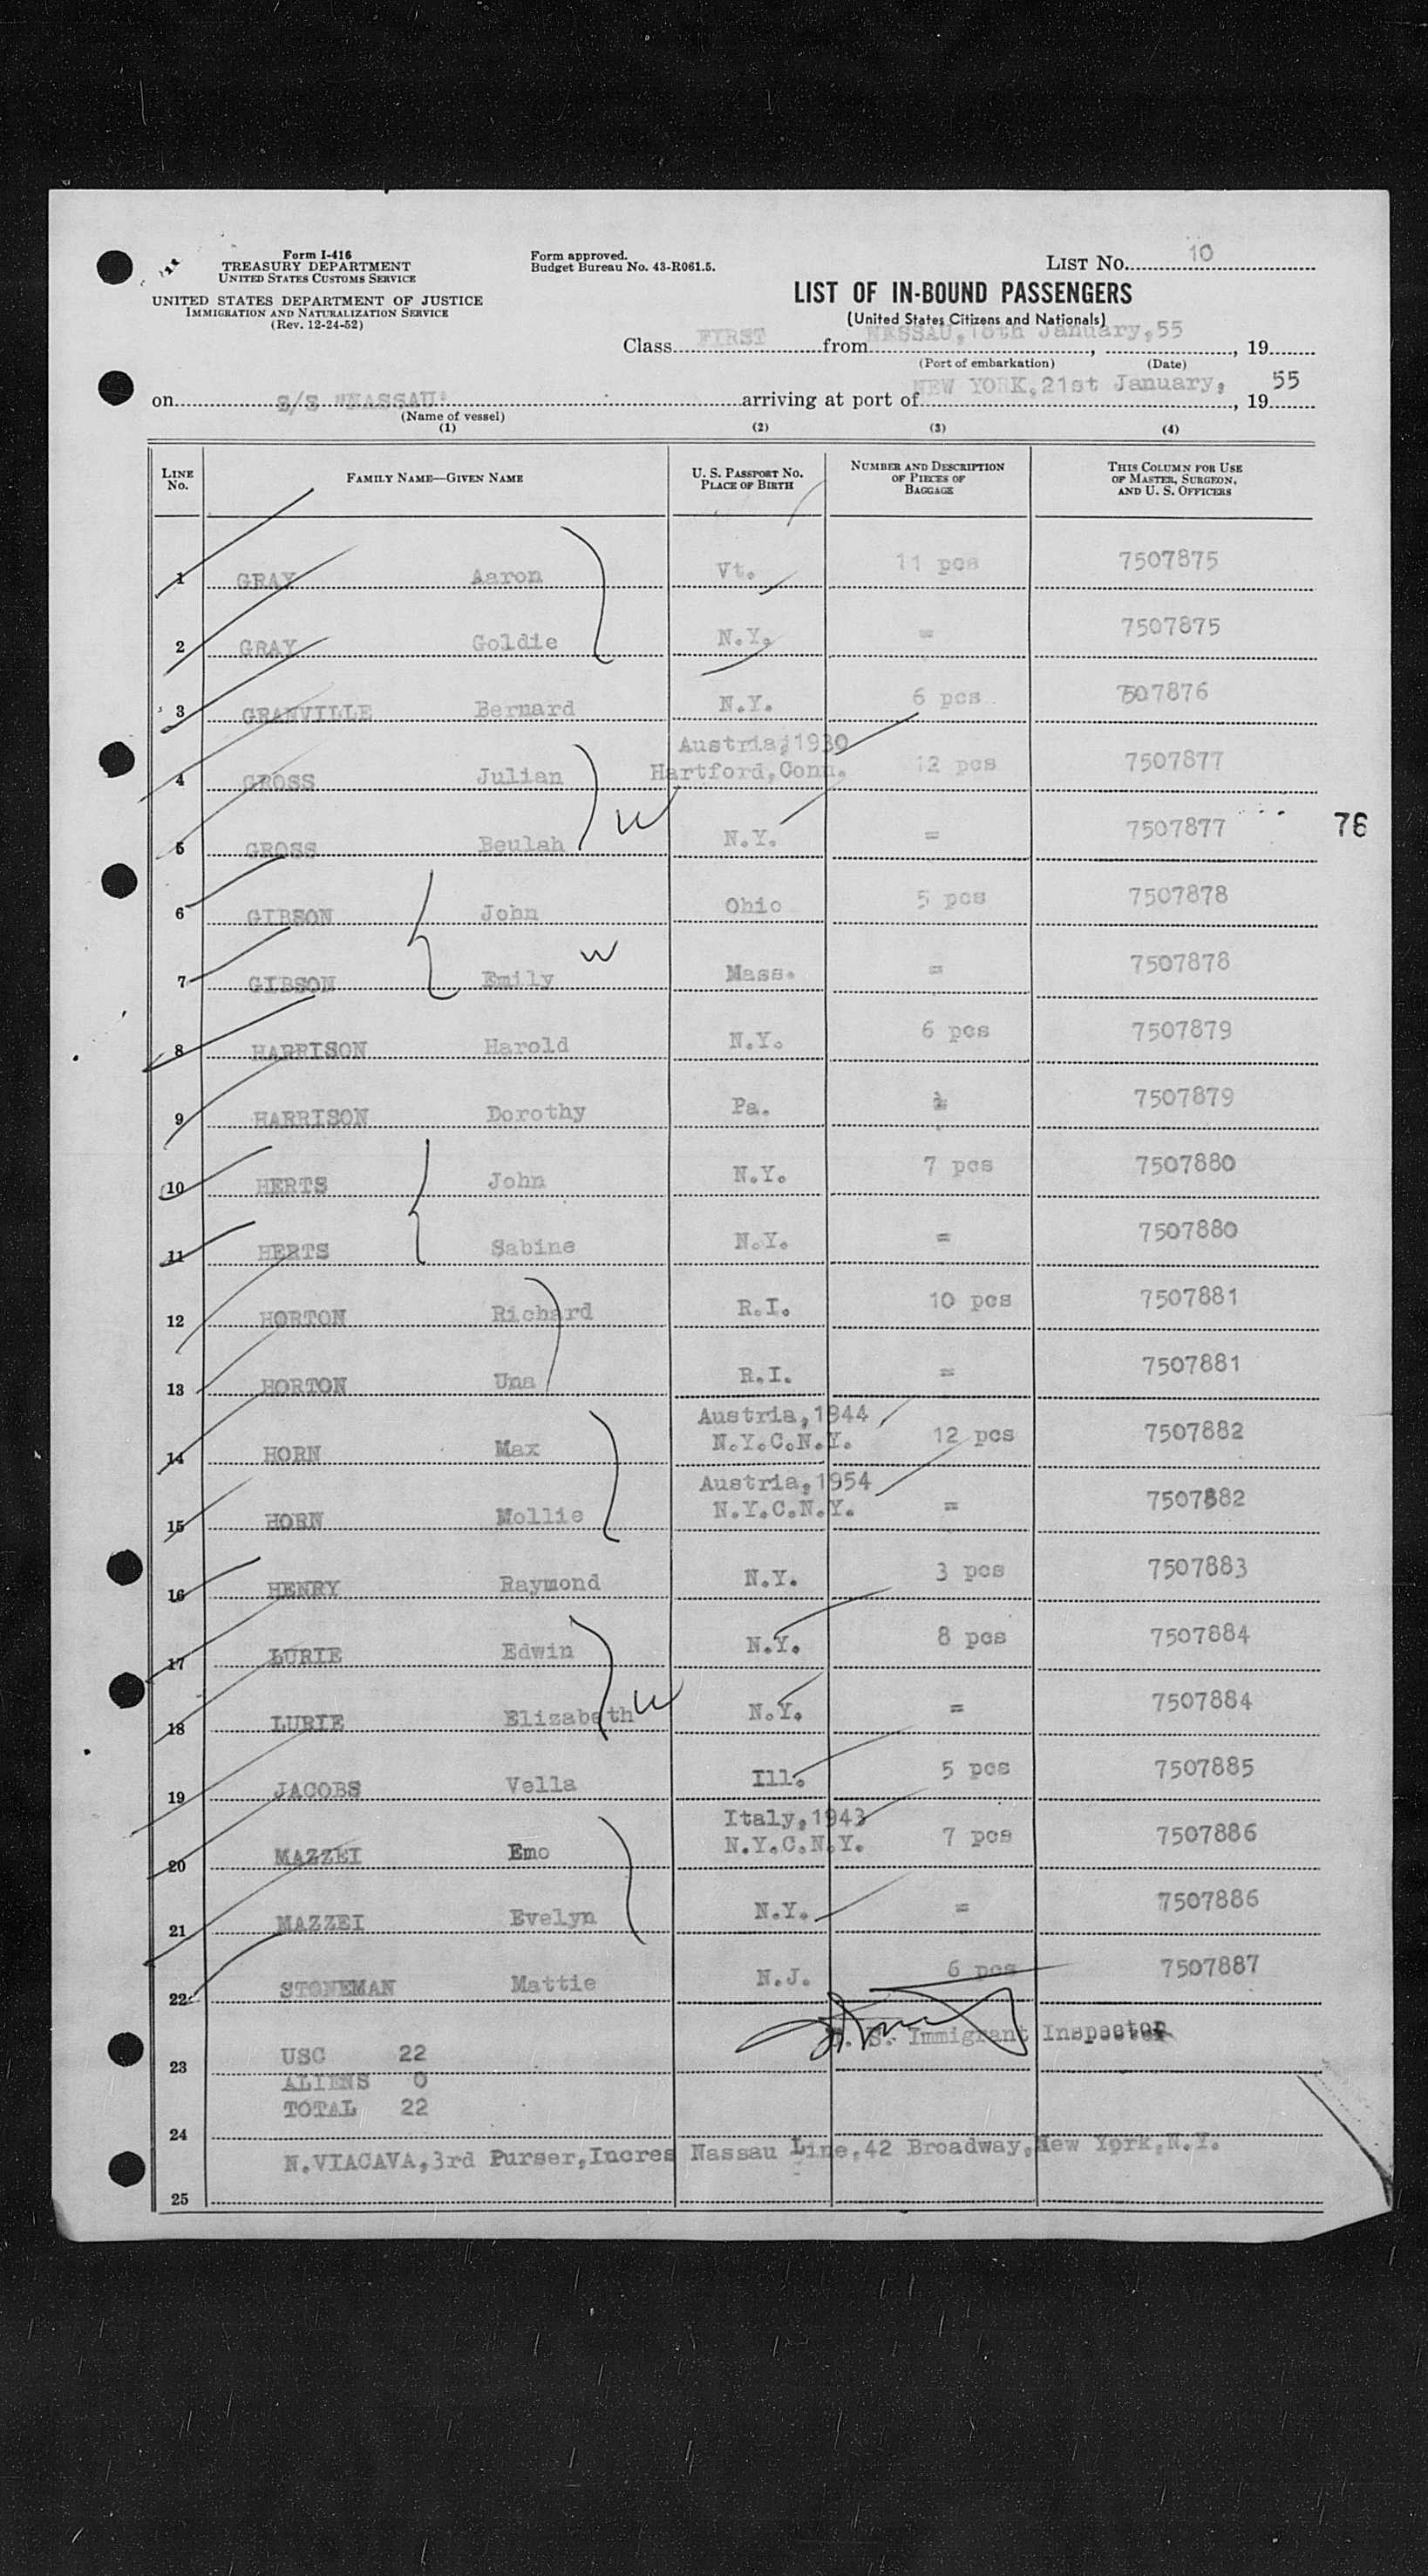 Form I-416
TREASURY DEPARTMENT
UNITED STATES CUSTOMS SERVICE
UNITED STATES DEPARTMENT OF JUSTICE
IMMIGRATION AND NATURALIZATION SERVICE
(Rev. 12-24-52)
Form approved.
Budget Bureau No. 43-R061.5.
LIST No. 10
LIST OF IN-BOUND PASSENGERS
(United States Citizens and Nationals)
Class FIRST from NESSAU, 18th January, 55, 19
(Port of embarkation) (Date)
on S/S "NASSAU" arriving at port of NEW YORK, 21st January, 1955
(Name of vessel)
(1) (2) (3) (4)
LINE No. FAMILY NAME—GIVEN NAME U. S. PASSPORT No. PLACE OF BIRTH NUMBER AND DESCRIPTION OF PIECES OF BAGGAGE THIS COLUMN FOR USE OF MASTER, SURGEON, AND U. S. OFFICERS
1 GRAY Aaron Vt. 11 pcs 7507875
2 GRAY Goldie N.Y. = 7507875
3 GRANVILLE Bernard N.Y. 6 pcs 7507876
Austria, 1930
4 GROSS Julian Hartford, Conn. 12 pcs 7507877
5 GROSS Beulah W N.Y. = 7507877
76
6 GIBSON John Ohio 5 pcs 7507878
7 GIBSON Emily W Mass. = 7507878
8 HARRISON Harold N.Y. 6 pcs 7507879
9 HARRISON Dorothy Pa. = 7507879
10 HERTS John N.Y. 7 pcs 7507880
11 HERTS Sabine N.Y. = 7507880
12 HORTON Richard R.I. 10 pcs 7507881
13 HORTON Una R.I. = 7507881
Austria, 1944
14 HORN Max N.Y.C.N.Y. 12 pcs 7507882
Austria, 1954
15 HORN Mollie N.Y.C.N.Y. = 7507882
16 HENRY Raymond N.Y. 3 pcs 7507883
17 LURIE Edwin N.Y. 8 pcs 7507884
18 LURIE Elizabeth W N.Y. = 7507884
19 JACOBS Vella Ill. 5 pcs 7507885
Italy, 1943
20 MAZZEI Emo N.Y.C.N.Y. 7 pcs 7507886
21 MAZZEI Evelyn N.Y. = 7507886
22 STONEMAN Mattie N.J. 6 pcs 7507887
U. S. Immigrant Inspector
23 USC 22
ALIENS 0
TOTAL 22
24
N.VIACAVA, 3rd Purser, Incres Nassau Line, 42 Broadway, New York, N.Y.
25